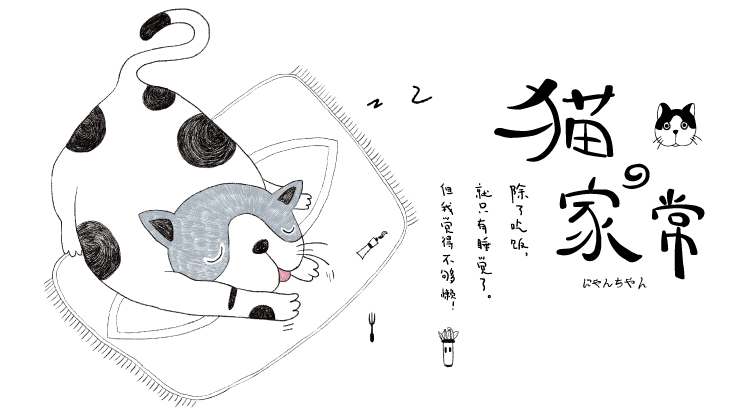 猫の家常
にゃんちゃん
除了吃饭,
就只有睡觉了。
但我觉得不够懒!
z z